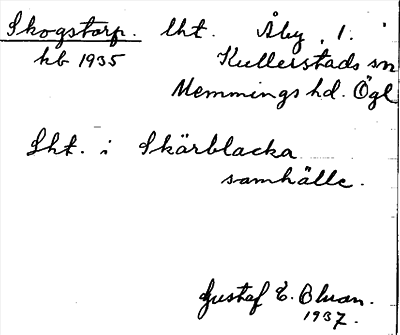 Skogstorp. lht. Åby, 1.
kb 1935 Kullerstads sn
Memmings hd. Ögl
Lht. i Skärblacka
samhälle.
Gustaf E. Bluan.
1937.